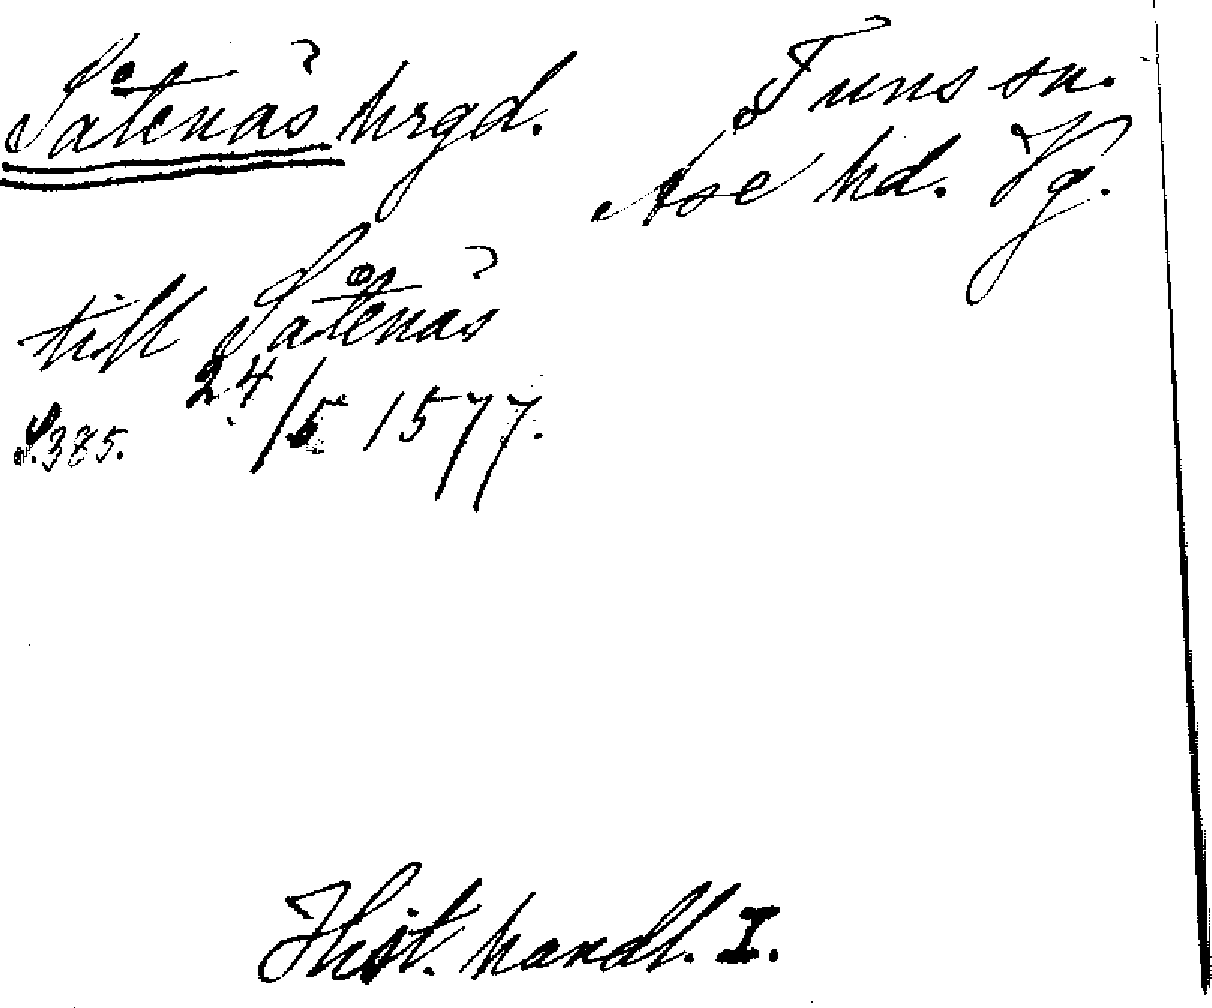 Såtenäs hrgd. Tuns sn.
Åse hd. Vg.
till Såtenäs
24/5 1577.
S. 385.
Hist. handl. I.